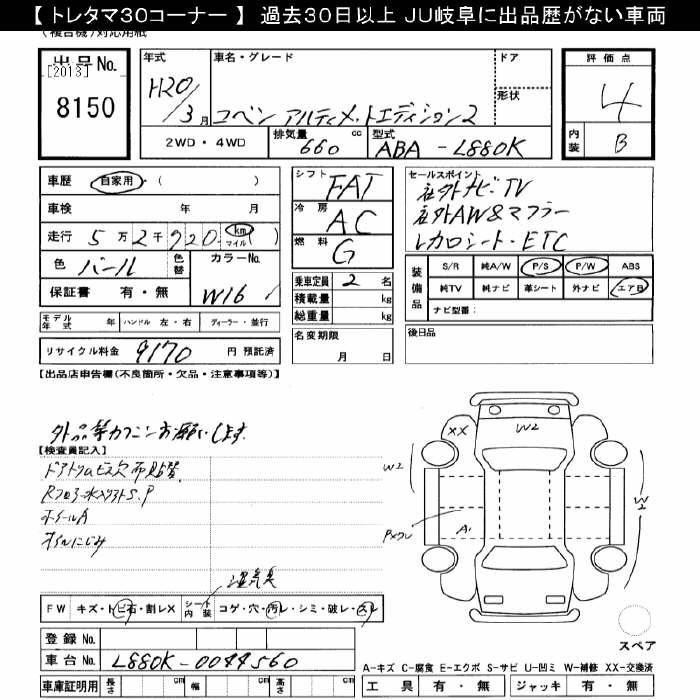 【 トレタマ30コーナー 】 過去30日以上 JU岐阜に出品歴がない車両
(複合機)対応用紙
出品No.
[2013]
8150
年式
H20/3月
車名・グレード
コペン アルティメットエディション2
ドア
形状
2WD・4WD
排気量 660 cc
型式 ABA-L880K
評価点
4
内装 B
車歴 自家用・( )
車検 年 月
走行 5万2千920 km マイル ( )
色 パール 色替 カラーNo. W16
保証書 有・無
シフト FAT
冷房 AC
燃料 G
乗車定員 2 名
積載量 kg
総重量 kg
名変期限 月 日
セールスポイント
社外ナビ・TV
社外AW&マフラー
レカロシート・ETC
装備品
S/R 純A/W P/S P/W ABS
純TV 純ナビ 革シート 外ナビ エアB
ナビ型番:
後日品
モデル年式 年 ハンドル 左・右 ディーラー・並行
リサイクル料金 9170 円 預託済
【出品店申告欄(不良箇所・欠品・注意事項等)】
【検査員記入】
ドアトリムビス欠
ホイールA
オイルにじみ
湿気臭
FW キズ・トビ石・割レX シート内装 コゲ・穴・汚レ・シミ・破レ・スレ
XX
W2
W2
W2
A
スペア
登録No.
車台No. L880K-0044560
車庫証明用 長さ cm 幅 cm 高さ cm
A-キズ C-腐食 E-エクボ S-サビ U-凹ミ W-補修 XX-交換済
工具 有・無 ジャッキ 有・無